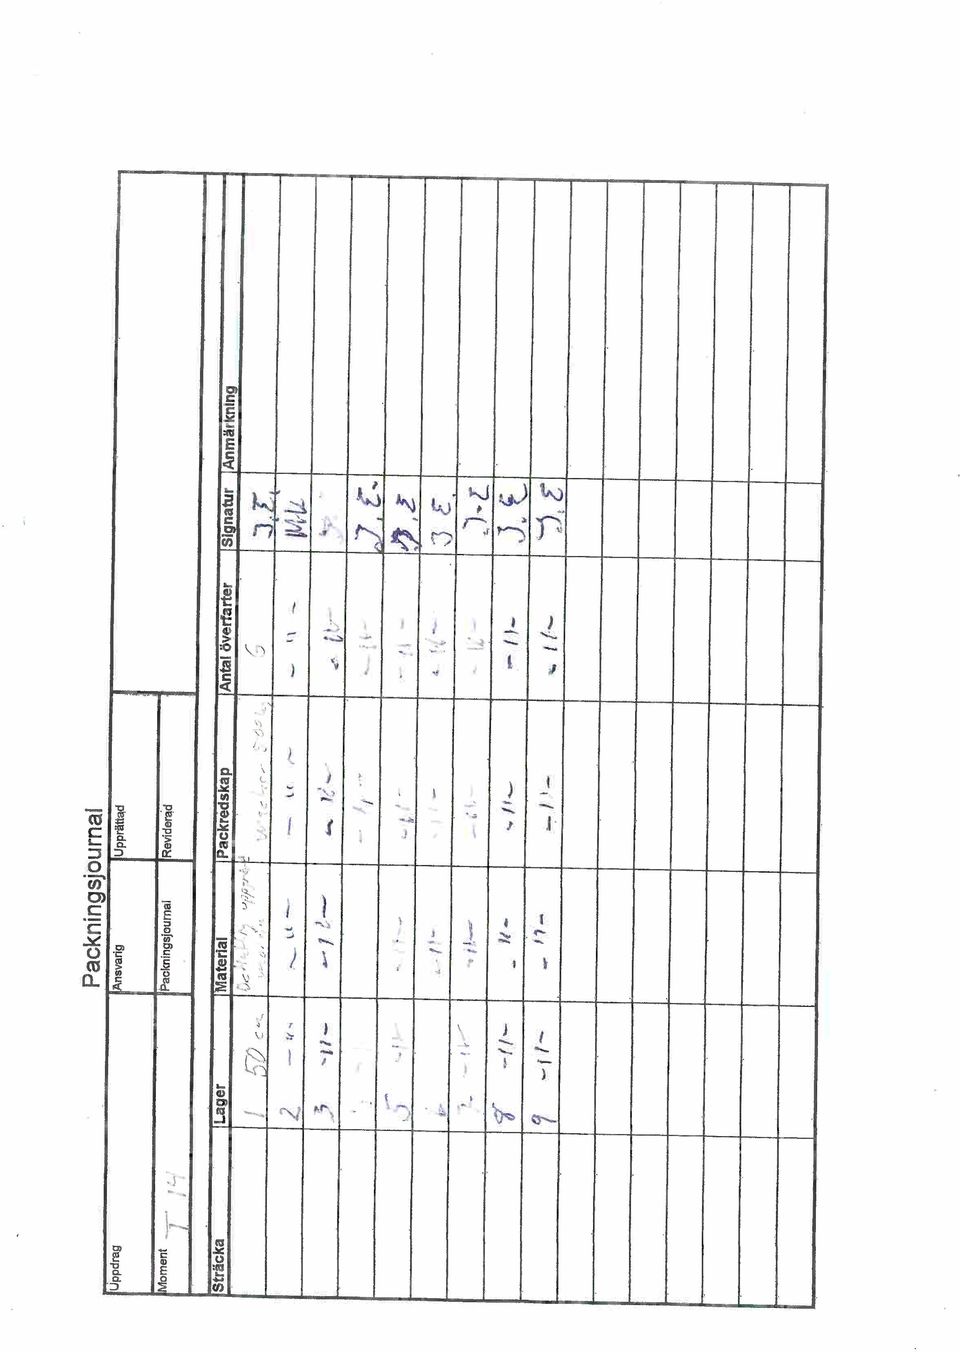 Packningsjournal
Uppdrag Ansvarig Upprättad
Moment T 14 Packningsjournal Reviderad
Sträcka Lager Material Packredskap Antal överfarter Signatur Anmärkning
1 50 cm 6 J.E.
2 -"- -"- -"- -"- MK
3 -"- -"- -"- -"-
-"- -"- -"- J.E.
5 -"- -"- -"- -"- J.E
6 -"- -"- -"- J.E.
7 -"- -"- -"- -"- J.E
8 -"- -"- -"- -"- J.E
9 -"- -"- -"- -"- J.E